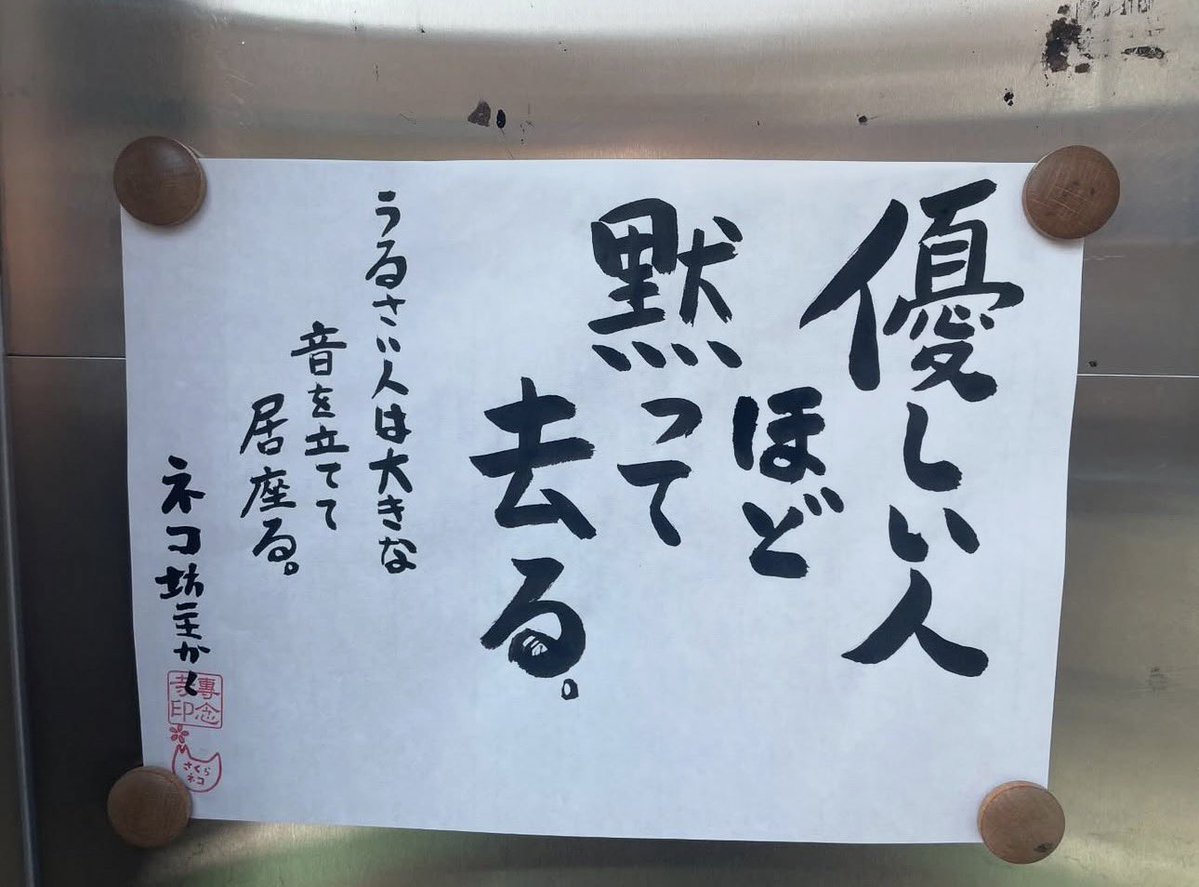 優しい人
ほど
黙って
去る。
うるさい人は大きな
音を立てて
居座る。
ネコ坊主かく
専念
寺印
さくら
ネコ